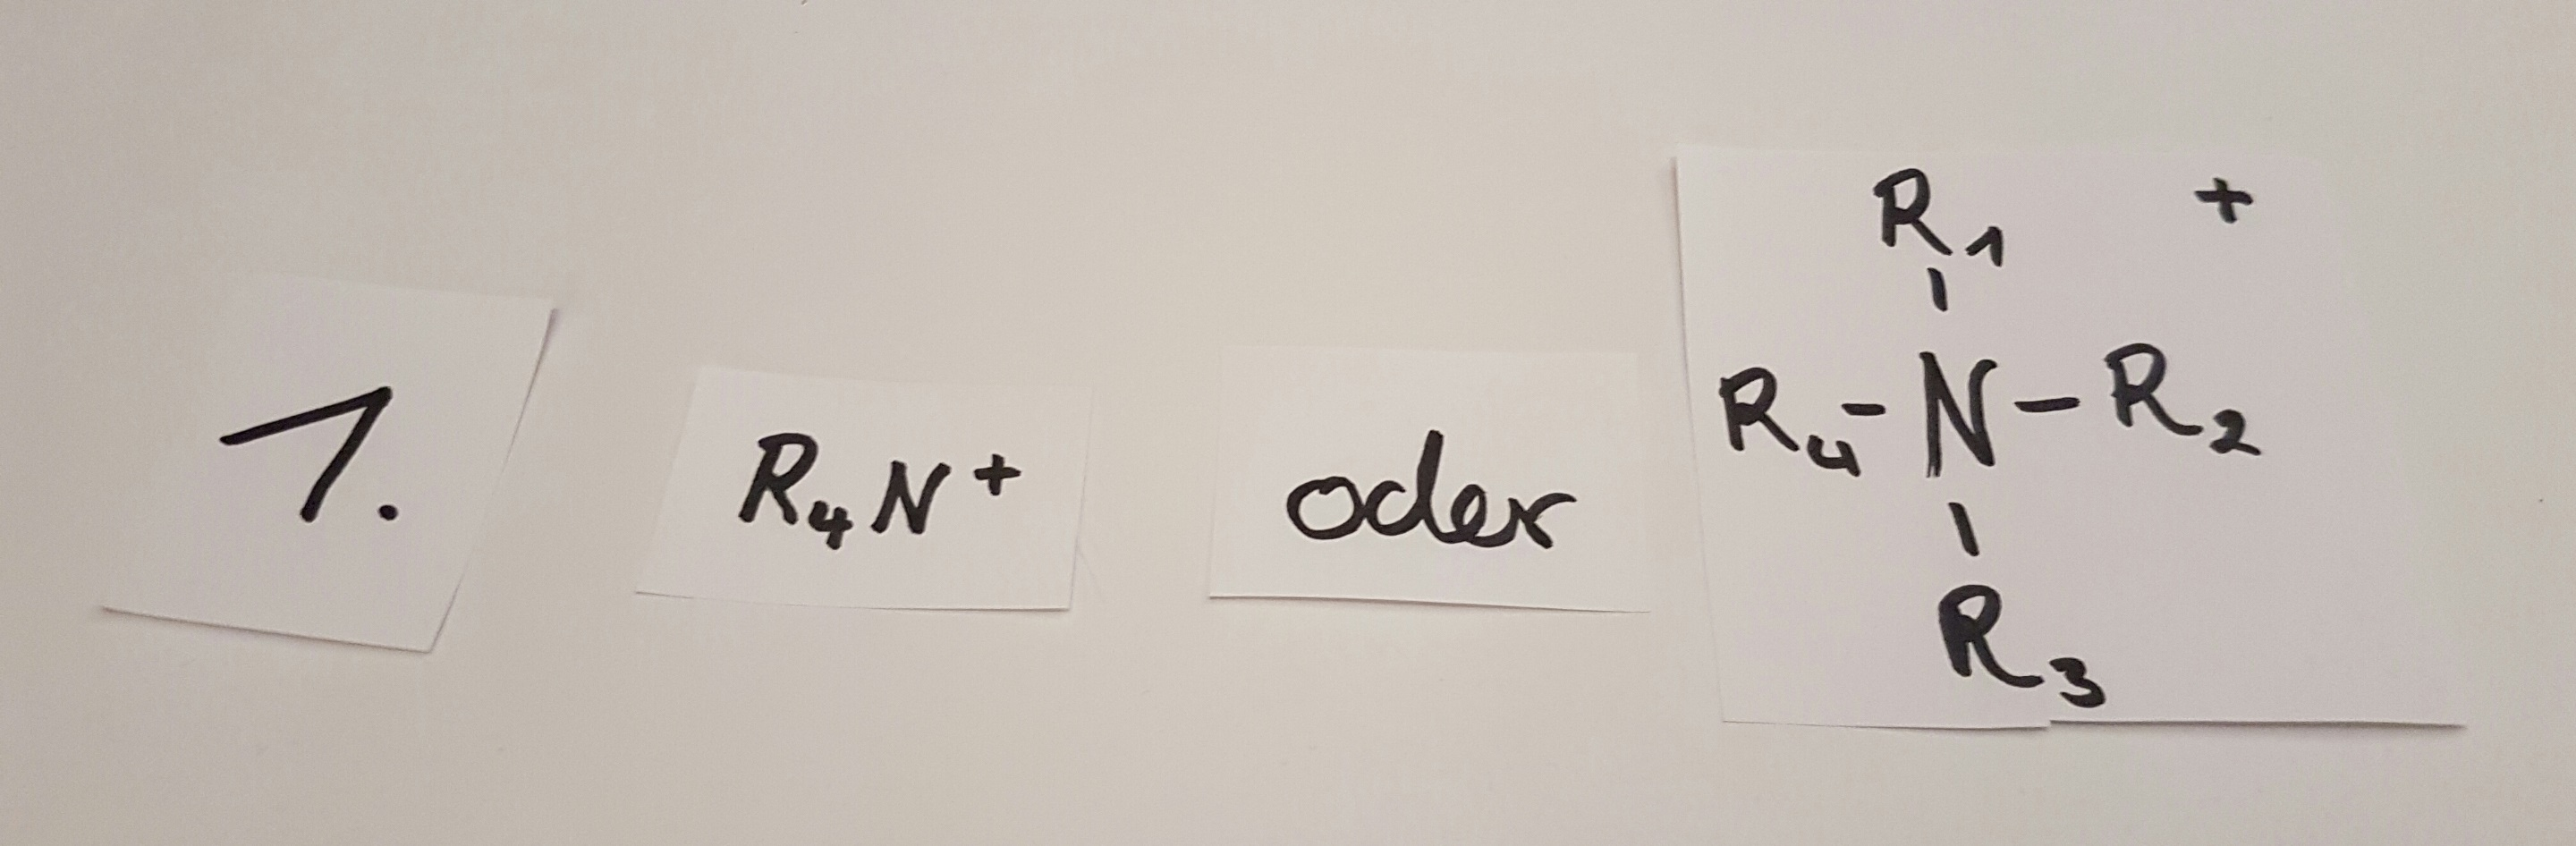 1. R₄N⁺ oder
R₁ +
R₄-N-R₂
R₃